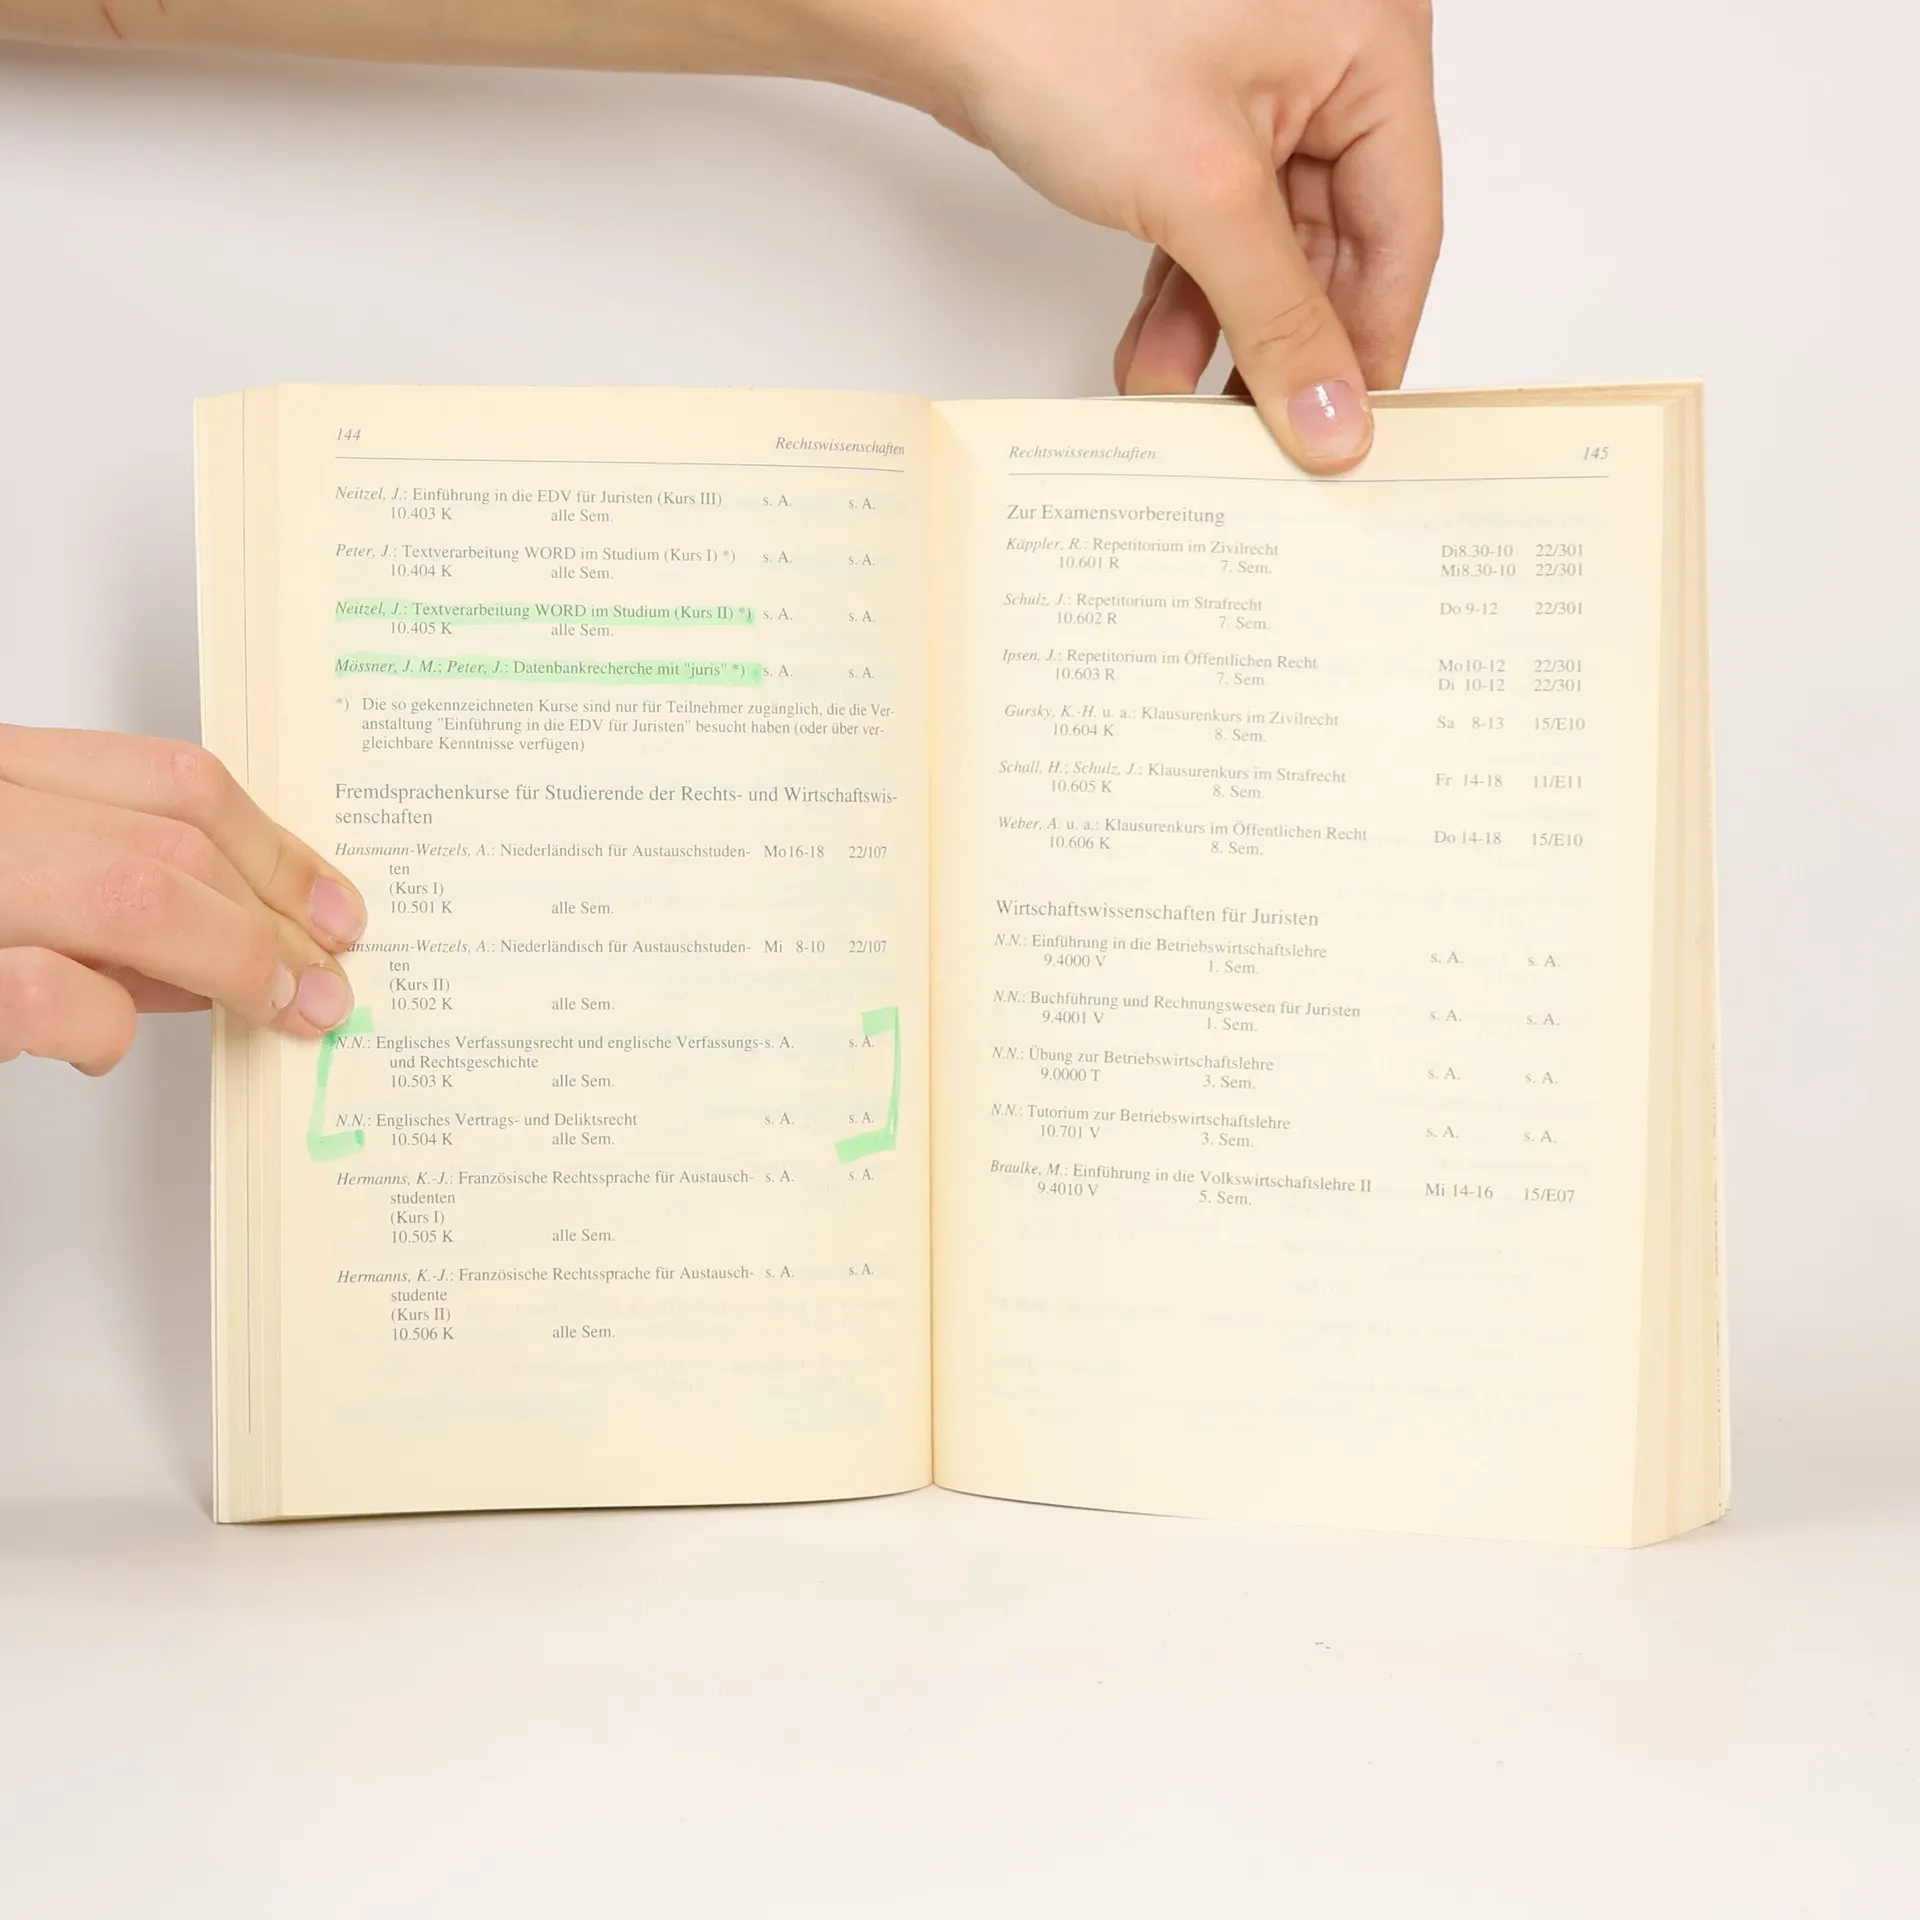 144 Rechtswissenschaften
Neitzel, J.: Einführung in die EDV für Juristen (Kurs III) s. A. s. A.
10.403 K alle Sem.
Peter, J.: Textverarbeitung WORD im Studium (Kurs I) *) s. A. s. A.
10.404 K alle Sem.
Neitzel, J.: Textverarbeitung WORD im Studium (Kurs II) *) s. A. s. A.
10.405 K alle Sem.
Mössner, J. M.; Peter, J.: Datenbankrecherche mit "juris" *) s. A. s. A.
*) Die so gekennzeichneten Kurse sind nur für Teilnehmer zugänglich, die die Ver-
anstaltung "Einführung in die EDV für Juristen" besucht haben (oder über ver-
gleichbare Kenntnisse verfügen)
Fremdsprachenkurse für Studierende der Rechts- und Wirtschaftswis-
senschaften
Hansmann-Wetzels, A.: Niederländisch für Austauschstuden- Mo 16-18 22/107
ten
(Kurs I)
10.501 K alle Sem.
ansmann-Wetzels, A.: Niederländisch für Austauschstuden- Mi 8-10 22/107
ten
(Kurs II)
10.502 K alle Sem.
N.N.: Englisches Verfassungsrecht und englische Verfassungs-s. A. s. A.
und Rechtsgeschichte
10.503 K alle Sem.
N.N.: Englisches Vertrags- und Deliktsrecht s. A. s. A.
10.504 K alle Sem.
Hermanns, K.-J.: Französische Rechtssprache für Austausch- s. A. s. A.
studenten
(Kurs I)
10.505 K alle Sem.
Hermanns, K.-J.: Französische Rechtssprache für Austausch- s. A. s. A.
studente
(Kurs II)
10.506 K alle Sem.
Rechtswissenschaften 145
Zur Examensvorbereitung
Käppler, R.: Repetitorium im Zivilrecht Di8.30-10 22/301
10.601 R 7. Sem. Mi8.30-10 22/301
Schulz, J.: Repetitorium im Strafrecht Do 9-12 22/301
10.602 R 7. Sem.
Ipsen, J.: Repetitorium im Öffentlichen Recht Mo10-12 22/301
10.603 R 7. Sem. Di 10-12 22/301
Gursky, K.-H. u. a.: Klausurenkurs im Zivilrecht Sa 8-13 15/E10
10.604 K 8. Sem.
Schall, H.; Schulz, J.: Klausurenkurs im Strafrecht Fr 14-18 11/E11
10.605 K 8. Sem.
Weber, A. u. a.: Klausurenkurs im Öffentlichen Recht Do 14-18 15/E10
10.606 K 8. Sem.
Wirtschaftswissenschaften für Juristen
N.N.: Einführung in die Betriebswirtschaftslehre s. A. s. A.
9.4000 V 1. Sem.
N.N.: Buchführung und Rechnungswesen für Juristen s. A. s. A.
9.4001 V 1. Sem.
N.N.: Übung zur Betriebswirtschaftslehre s. A. s. A.
9.0000 T 3. Sem.
N.N.: Tutorium zur Betriebswirtschaftslehre s. A. s. A.
10.701 V 3. Sem.
Braulke, M.: Einführung in die Volkswirtschaftslehre II Mi 14-16 15/E07
9.4010 V 5. Sem.